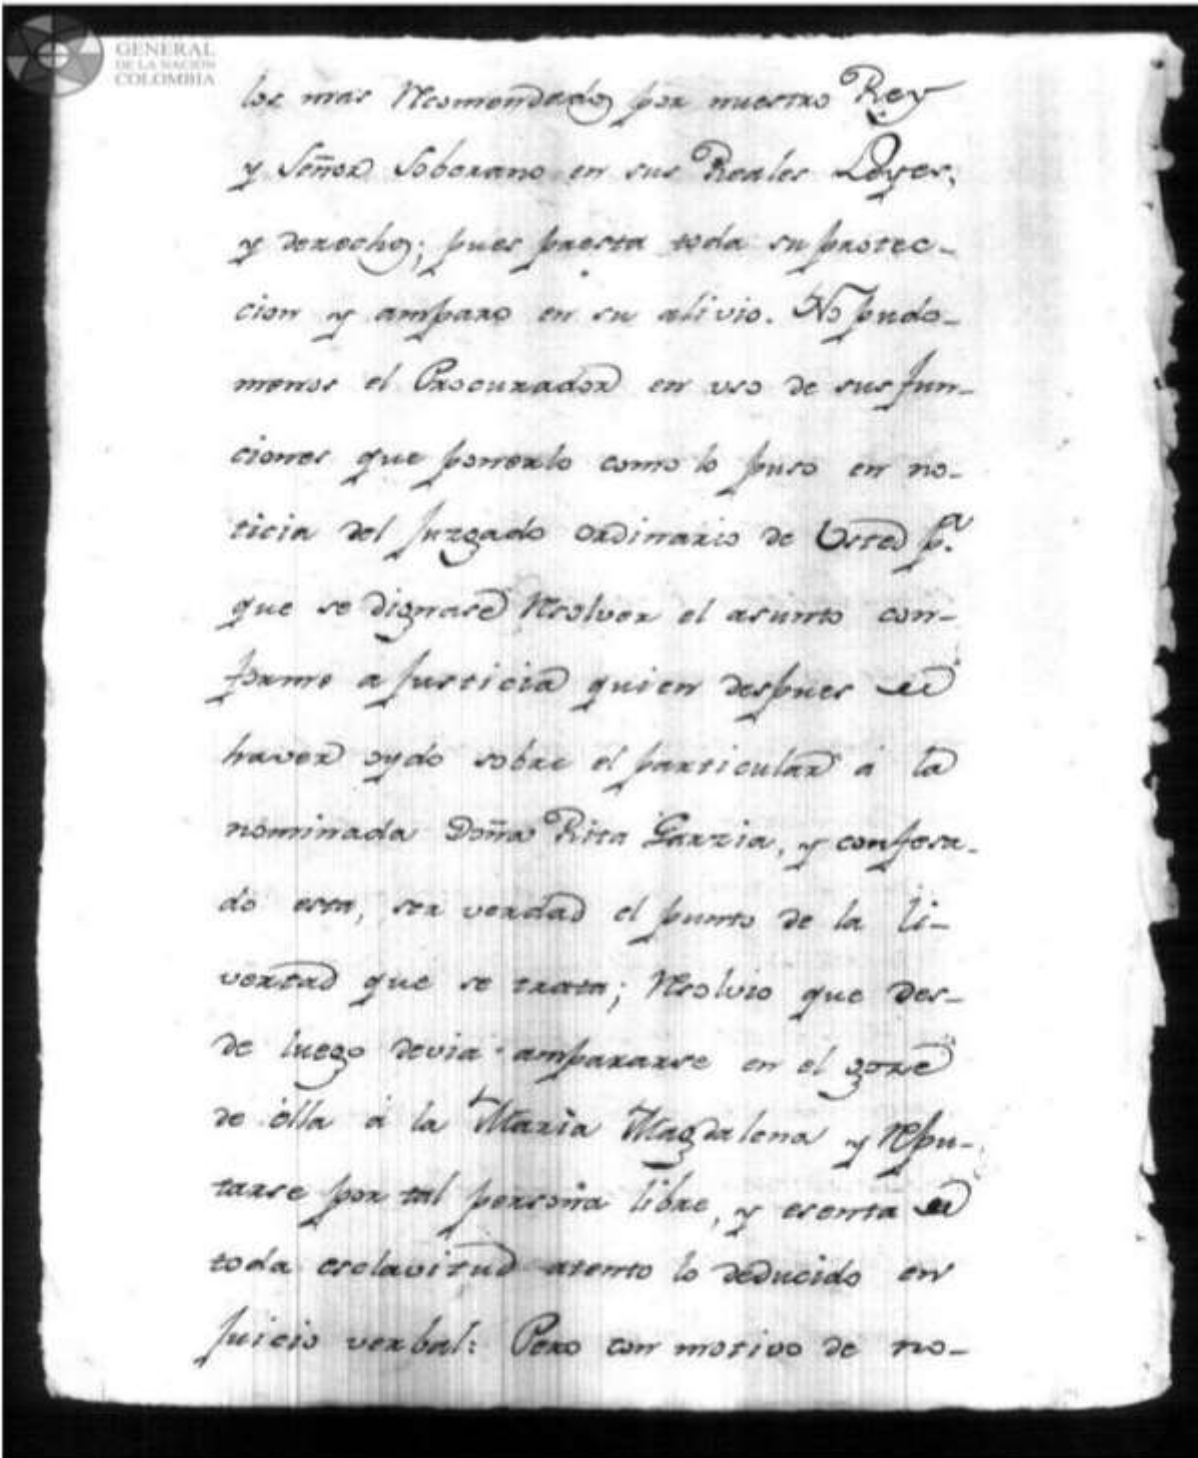 GENERAL
DE LA NACIÓN
COLOMBIA
los mas Recomendados por nuestro Rey
y Señor Soberano en sus Reales Leyes,
y derechos; pues presta toda su protec-
cion y amparo en su alivio. No pudo-
menos el Procurador en uso de sus fun-
ciones que ponerlo como lo puso en no-
ticia del Juzgado ordinario de Usted pa.
que se dignase Resolver el asunto con-
forme a Justicia quien despues de
haver oydo sobre el particular á la
nominada Doña Rita Garzia, y confesa-
do esta, ser verdad el punto de la li-
vertad que se trata; Resolvio que des-
de luego devia ampararse en el goze
de ella á la Maria Magdalena y Repu-
tarse por tal persona libre, y esenta de
toda esclavitud atento lo deducido en
Juicio verbal: Pero con motivo de no-